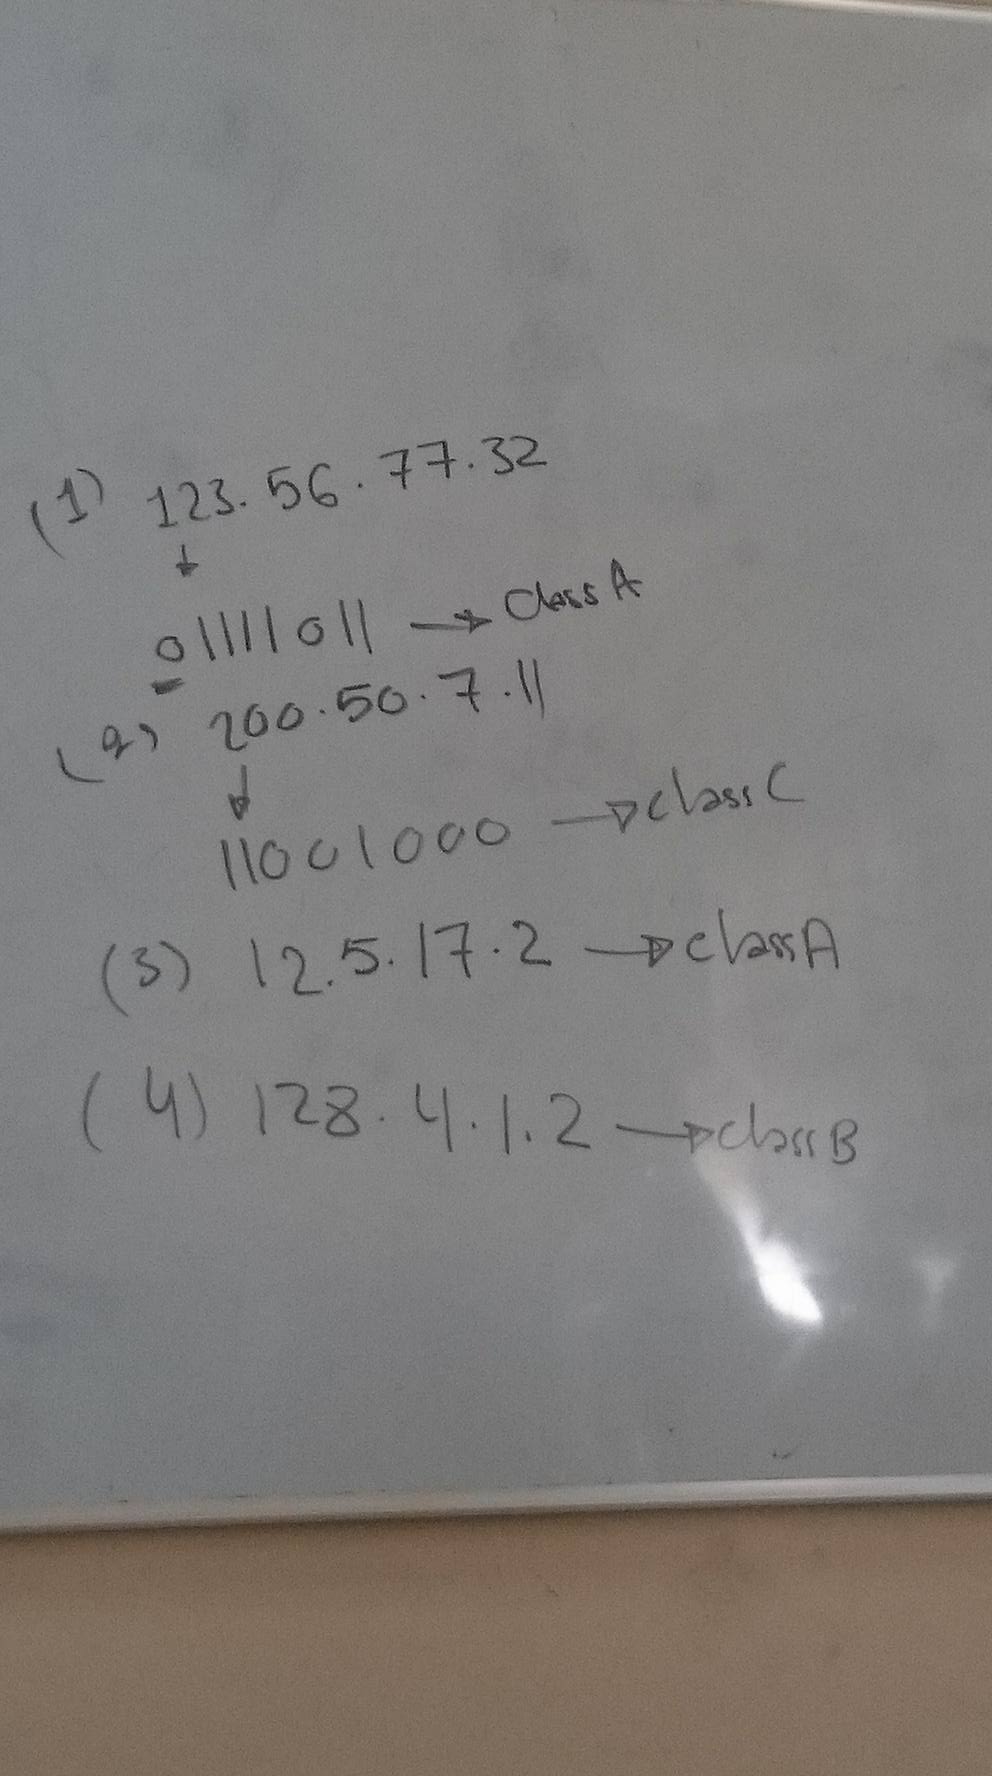 (1) 123.56.77.32
↓
01111011 → Class A
(2) 200.50.7.11
↓
11001000 → class C
(3) 12.5.17.2 → class A
(4) 128.4.1.2 → class B